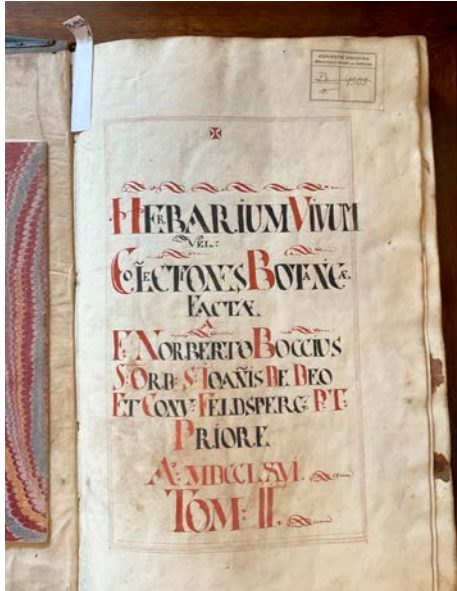 HERBARIUM VIVUM
VEL:
FACTÆ.
A
F: NORBERTO BOCCIUS
S: ORD: S: IOAÑIS DE DEO
ET CONV: FELDSPERG: P: T:
PRIORE.
A: MDCCLXVI.
TOM: II.